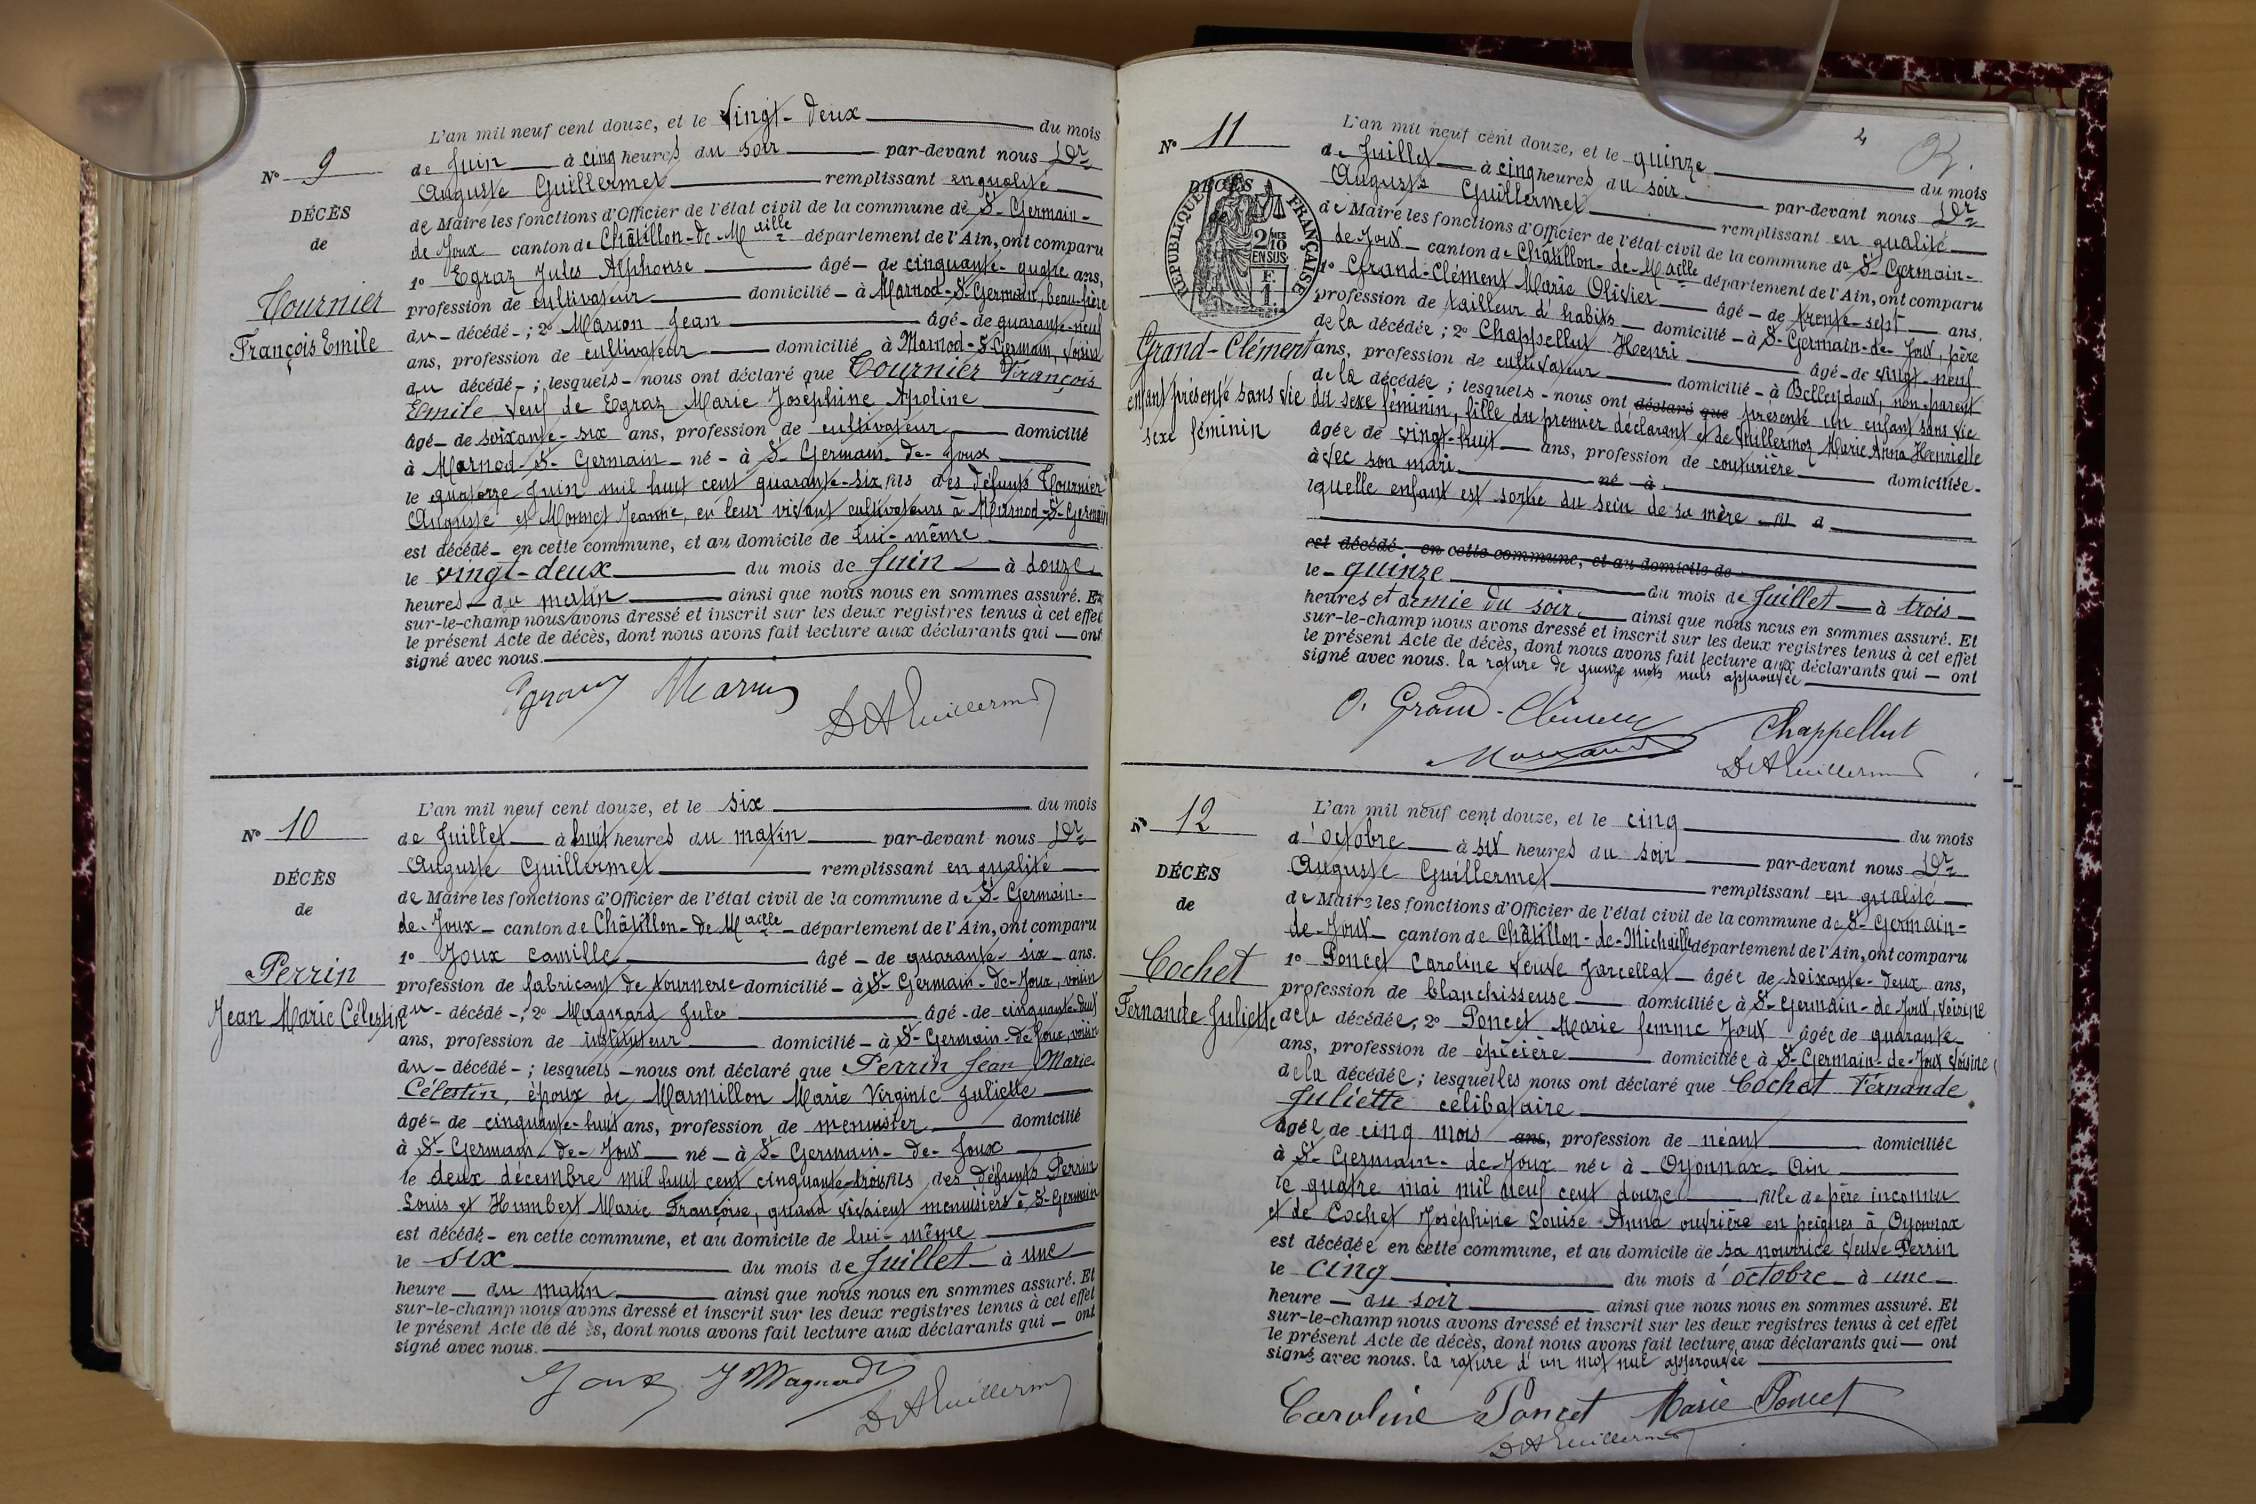 L'an mil neuf cent douze, et le vingt-deux du mois
de Juin à cinq heures du soir par-devant nous Dr
Auguste Guillermet remplissant en qualité
de Maire les fonctions d'Officier de l'état civil de la commune de St Germain-
de Joux canton de Châtillon-de-Maille département de l'Ain, ont comparu
1° Egraz Jules Alphonse âgé de cinquante-quatre ans,
profession de cultivateur domicilié à Marnod-St Germain, beau-frère
du décédé; 2° Marion Jean âgé de quarante-neuf
ans, profession de cultivateur domicilié à Marnod-St Germain, voisin
du décédé; lesquels nous ont déclaré que Tournier François
Emile veuf de Egraz Marie Josephine Apoline
âgé de soixante-six ans, profession de cultivateur domicilié
à Marnod-St Germain né à St Germain-de-Joux
le quatorze Juin mil huit cent quarante-six fils des défunts Tournier
Auguste et Monnet Jeanne, en leur vivant cultivateurs à Marnod-St Germain
est décédé en cette commune, et au domicile de lui-même
le vingt-deux du mois de Juin à douze
heures du matin ainsi que nous nous en sommes assuré. Et
sur-le-champ nous avons dressé et inscrit sur les deux registres tenus à cet effet
le présent Acte de décès, dont nous avons fait lecture aux déclarants qui ont
signé avec nous.
N° 9
DÉCÈS
de
Tournier
François Emile
Egraz Marion
Dr A Guillermet
L'an mil neuf cent douze, et le six du mois
de Juillet à huit heures du matin par-devant nous Dr
Auguste Guillermet remplissant en qualité
de Maire les fonctions d'Officier de l'état civil de la commune de St Germain-
de-Joux canton de Châtillon-de-Maille département de l'Ain, ont comparu
1° Joux Camille âgé de quarante-six ans.
profession de fabricant de tournerie domicilié à St Germain-de-Joux, voisin
du décédé; 2° Magnard Jules âgé de cinquante-deux
ans, profession de instituteur domicilié à St Germain-de-Joux, voisin
du décédé; lesquels nous ont déclaré que Perrin Jean Marie
Célestin, époux de Marmillon Marie Virginie Juliette
âgé de cinquante-huit ans, profession de menuisier domicilié
à St Germain-de-Joux né à St Germain-de-Joux
le deux décembre mil huit cent cinquante-trois fils des défunts Perrin
Louis et Humbert Marie Françoise, quand vivaient menuisiers à St Germain
est décédé en cette commune, et au domicile de lui-même
le six du mois de Juillet à une
heure du matin ainsi que nous nous en sommes assuré. Et
sur-le-champ nous avons dressé et inscrit sur les deux registres tenus à cet effet
le présent Acte de dé s, dont nous avons fait lecture aux déclarants qui ont
signé avec nous.
N° 10
DÉCÈS
de
Perrin
Jean Marie Célestin
Joux J Magnard
Dr A Guillermet
4
L'an mil neuf cent douze, et le quinze du mois
de Juillet à cinq heures du soir par-devant nous Dr
Auguste Guillermet remplissant en qualité
de Maire les fonctions d'Officier de l'état civil de la commune de St Germain-
de-Joux canton de Châtillon-de-Maille département de l'Ain, ont comparu
1° Grand-Clément Marie Olivier âgé de trente-sept ans.
profession de tailleur d'habits domicilié à St Germain-de-Joux, père
de la décédée; 2° Chappellut Henri âgé de vingt-neuf
ans, profession de cultivateur domicilié à Belleydoux, non parent
de la décédée; lesquels nous ont déclaré que présenté un enfant sans vie
du sexe féminin, fille du premier déclarant et de Vuillermoz Marie Anna Henriette
âgée de vingt-huit ans, profession de couturière domiciliée
avec son mari né à
lquelle enfant est sortie du sein de sa mère fil d
est décédé en cette commune, et au domicile de
le quinze du mois de Juillet à trois
heures et demie du soir ainsi que nous nous en sommes assuré. Et
sur-le-champ nous avons dressé et inscrit sur les deux registres tenus à cet effet
le présent Acte de décès, dont nous avons fait lecture aux déclarants qui ont
signé avec nous. la rature de quinze mots nuls approuvée
N° 11
DÉCÈS
RÉPUBLIQUE FRANÇAISE
2 MES
10
EN SUS
F.
1.
Grand-Clément
enfant présenté sans vie
sexe féminin
O. Grand-Clément Chappellut
Dr A Guillermet
L'an mil neuf cent douze, et le cinq du mois
d'octobre à six heures du soir par-devant nous Dr
Auguste Guillermet remplissant en qualité
de Maire les fonctions d'Officier de l'état civil de la commune de St Germain-
de-Joux canton de Châtillon-de-Michaille département de l'Ain, ont comparu
1° Poncet Caroline veuve Jarcellat âgée de soixante-deux ans,
profession de blanchisseuse domiciliée à St Germain-de-Joux, voisine
de la décédée, 2° Poncet Marie femme Joux âgée de quarante
ans, profession de épicière domiciliée à St Germain-de-Joux voisine
de la décédée; lesquelles nous ont déclaré que Cochet Fernande
Juliette célibataire
âgée de cinq mois ans, profession de néant domiciliée
à St Germain-de-Joux née à Oyonnax Ain
le quatre mai mil neuf cent douze fille de père inconnu
et de Cochet Joséphine Louise Anna ouvrière en peignes à Oyonnax
est décédée en cette commune, et au domicile de sa nourrice veuve Perrin
le cinq du mois d'octobre à une
heure du soir ainsi que nous nous en sommes assuré. Et
sur-le-champ nous avons dressé et inscrit sur les deux registres tenus à cet effet
le présent Acte de décès, dont nous avons fait lecture aux déclarants qui ont
signé avec nous. la rature d'un mot nul approuvée
N° 12
DÉCÈS
de
Cochet
Fernande Juliette
Caroline Poncet Marie Poncet
Dr A Guillermet